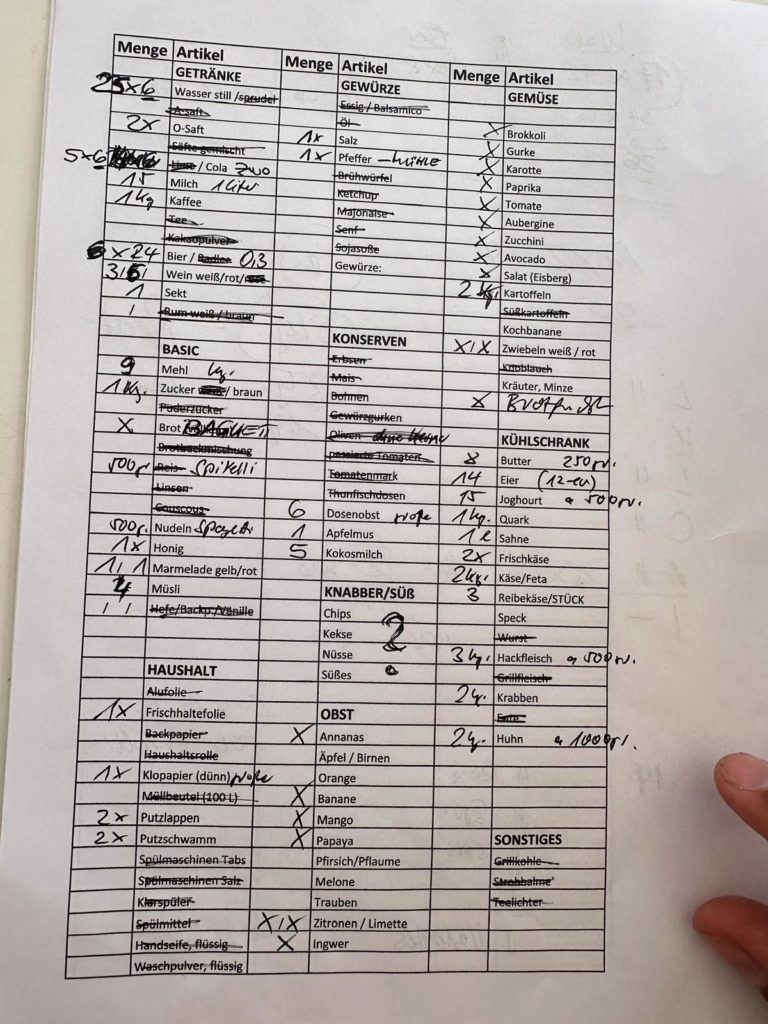 Menge Artikel
GETRÄNKE
25x6 Wasser still /sprudel
A-saft
2x O-Saft
Säfte gemischt
5x6 Limo / Cola Zero
15 Milch 1 Liter
1 Kg Kaffee
Tee
Kakaopulver
6 x 24 Bier / Radler 0,3
3/6/ Wein weiß/rot/
1 Sekt
/ Rum weiß / braun
BASIC
9 Mehl kg.
1 Kg. Zucker weiß / braun
Puderzucker
X Brot BAGUETT
Brotbackmischung
500gr Reis Spirelli
Linsen
Couscous
500gr. Nudeln Spagetti
1x Honig
1 / 1 Marmelade gelb/rot
4 Müsli
/ / Hefe/Backp./Vanille
HAUSHALT
Alufolie
1x Frischhaltefolie
Backpapier
Haushaltsrolle
1x Klopapier (dünn) große
Müllbeutel (100 L)
2x Putzlappen
2x Putzschwamm
Spülmaschinen Tabs
Spülmaschinen Salz
Klarspüler
Spülmittel
Handseife, flüssig
Waschpulver, flüssig
Menge Artikel
GEWÜRZE
Essig / Balsamico
Öl
1x Salz
1x Pfeffer – MÜHLE
Brühwürfel
Ketchup
Majonaise
Senf
Sojasoße
Gewürze:
KONSERVEN
Erbsen
Mais
Bohnen
Gewürzgurken
Oliven ohne Kerne
passierte Tomaten
Tomatenmark
Thunfischdosen
6 Dosenobst große
1 Apfelmus
5 Kokosmilch
KNABBER/SÜß
Chips
Kekse ?
Nüsse
Süßes
OBST
X Annanas
Äpfel / Birnen
Orange
X Banane
X Mango
X Papaya
Pfirsich/Pflaume
Melone
Trauben
X/X Zitronen / Limette
X Ingwer
Menge Artikel
GEMÜSE
X Brokkoli
X Gurke
X Karotte
X Paprika
X Tomate
X Aubergine
X Zucchini
X Avocado
X Salat (Eisberg)
2 Kg. Kartoffeln
Süßkartoffeln
Kochbanane
X/X Zwiebeln weiß / rot
Knoblauch
Kräuter, Minze
X Brotfrucht
KÜHLSCHRANK
8 Butter 250 gr.
14 Eier (12-er)
15 Joghourt a 500gr.
1 kg. Quark
1 l Sahne
2x Frischkäse
2 kg. Käse/Feta
3 Reibekäse/STÜCK
Speck
Wurst
3 kg. Hackfleisch a 500gr.
Grillfleisch
2 kg. Krabben
Ente
2 kg. Huhn a 1000gr.
SONSTIGES
Grillkohle
Strohhalme
Teelichter